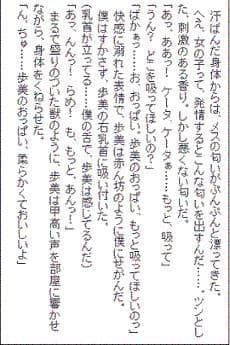 汗ばんだ身体からは、メスの匂いがぷんぷんと漂ってきた。
へえ、女の子って、発情するとこんな匂いを出すんだ……。ツンとし
た、刺激のある香り。しかし悪くない匂いだ。
「あっ、ああっ！ ケータ、ケータぁ……もっと、吸って」
「うん？ どこを吸ってほしいの？」
「ばかぁっ……お、おっぱい、歩美のおっぱい、もっと吸ってほしいのっ」
快感に溺れた表情で、歩美は赤ん坊のように僕にせがんだ。
僕はすかさず、歩美の右乳首に吸い付いた。
(乳首が立ってる……僕の舌で、歩美は感じてるんだ)
「あっ、んんっ！ らめ！ も、もっと、あんっ！」
まるで盛りのついた獣のように、歩美は甲高い声を部屋に響かせ
ながら、身体をくねらせた。
「ん、ちゅ……歩美のおっぱい、柔らかくておいしいよ」